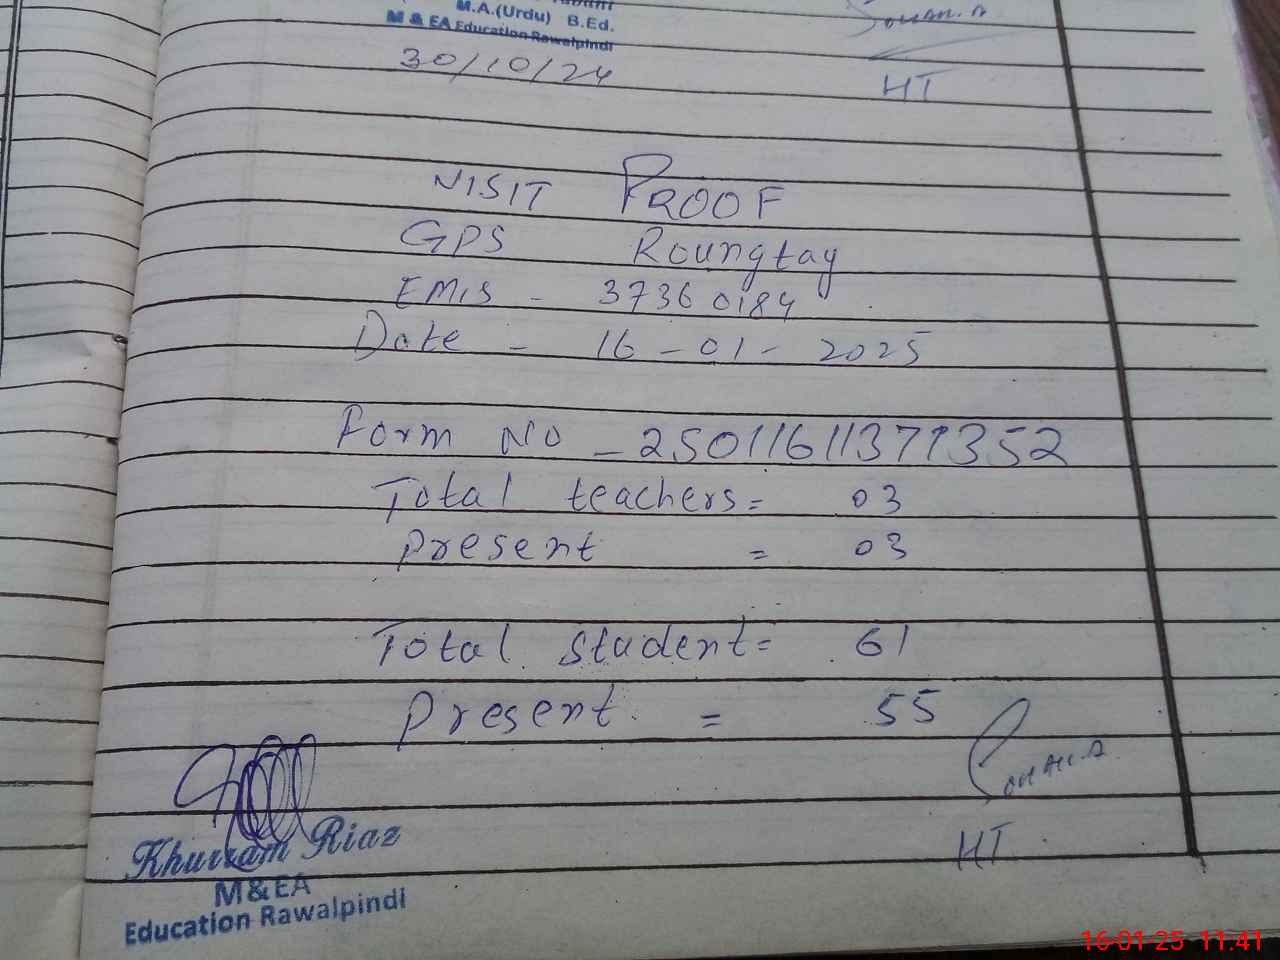 M.A.(Urdu) B.Ed.
M & EA Education Rawalpindi
30/10/24
HT
VISIT PROOF
GPS Roungtay
EMIS - 37360184
Date - 16-01-2025
Form No - 25011611371352
Total teachers = 03
Present = 03
Total student = 61
Present = 55
Khurram Riaz
M&EA
Education Rawalpindi
HT
16-01-25 11:41